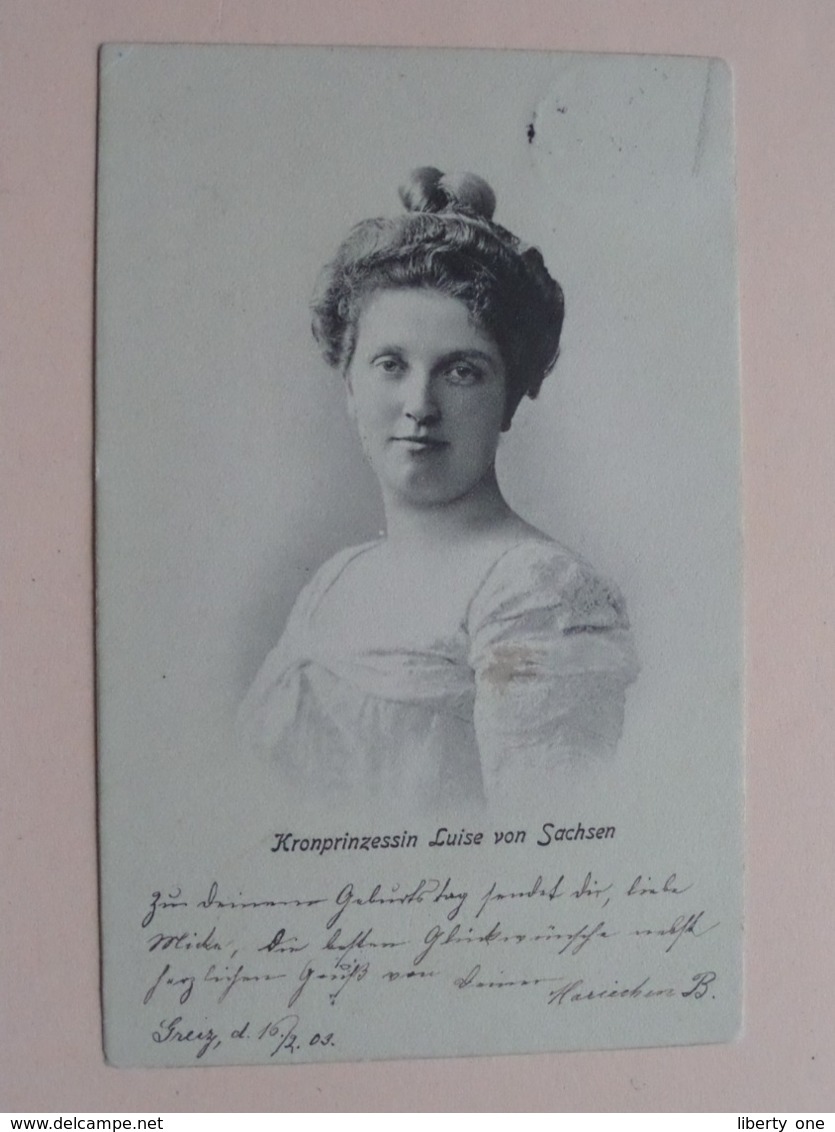 Kronprinzessin Luise von Sachsen
Zu deinem Geburtstag sendet dir, liebe
Micke, die besten Glückwünsche nebst
herzlichen Gruß von deiner Mariechen B.
Greiz, d. 16./2. 03.
www.delcampe.net
liberty one